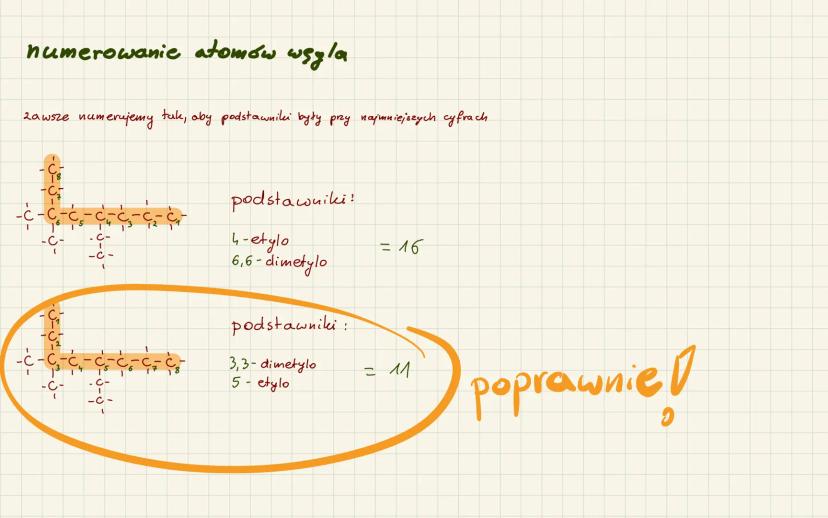 numerowanie atomów węgla
zawsze numerujemy tak, aby podstawniki były przy najmniejszych cyfrach
-C-
8
-C-
7
-C-C-C-C-C-C-C-
6 5 4 3 2 1
-C- -C-
-C-
podstawniki:
4-etylo
6,6-dimetylo
= 16
-C-
1
-C-
2
-C-C-C-C-C-C-C-
3 4 5 6 7 8
-C- -C-
-C-
podstawniki:
3,3-dimetylo
5-etylo
= 11
poprawnie!